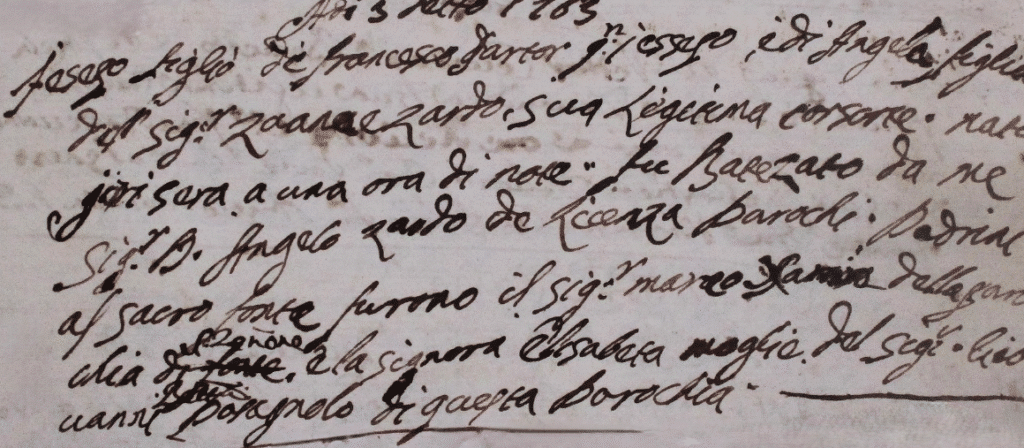 Adi 3 detto 1763
Jesepo figlio di francesco dartor qm jessepo è di Angela figlia
del sigr Zuane Zardo, sua Legitima consorte. nato
jeri sera a una ora di note. fu Batezato da me
sigr D. Angelo Zardo de Licenza Parochi. Padrini
al sacro fonte furono il sigr marco dellaparo
chia di e la signora Elisabeta moglie del sigr Gio
uanni di questa Parochia